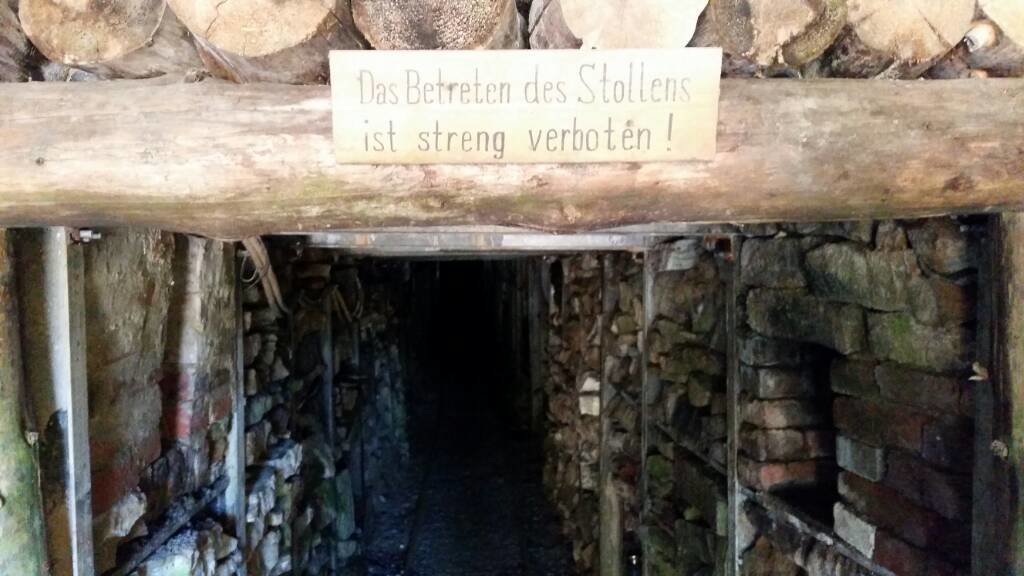 Das Betreten des Stollens
ist streng verboten !